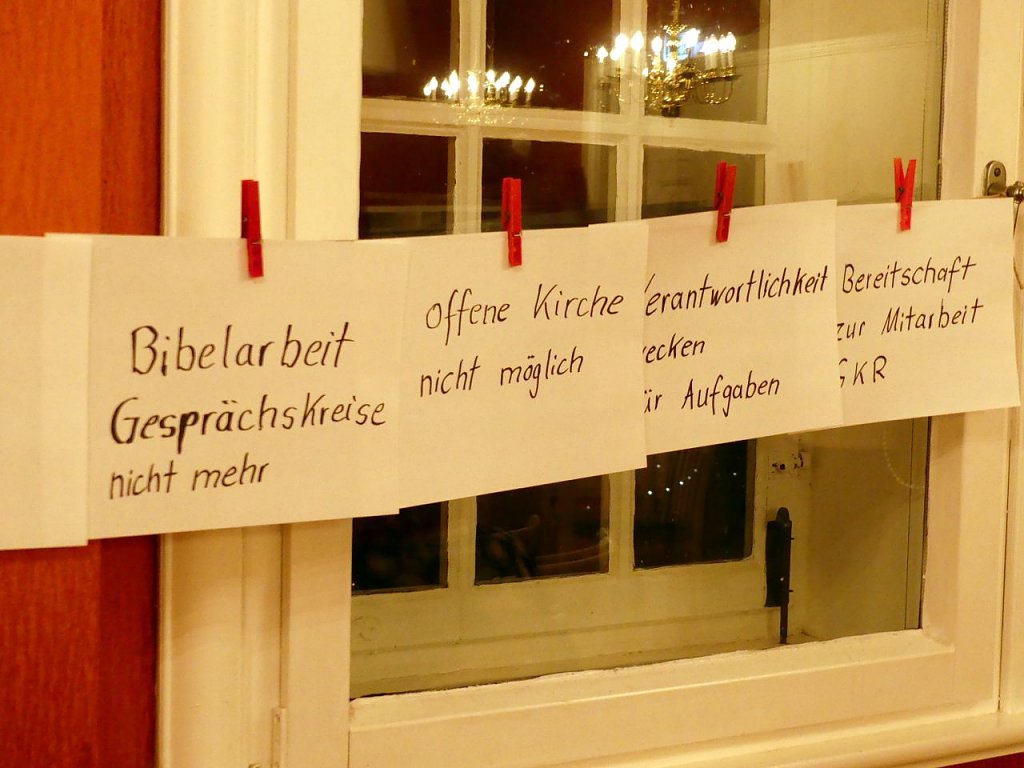 Bibelarbeit
Gesprächskreise
nicht mehr
Offene Kirche
nicht möglich
Verantwortlichkeit
wecken
für Aufgaben
Bereitschaft
zur Mitarbeit
GKR